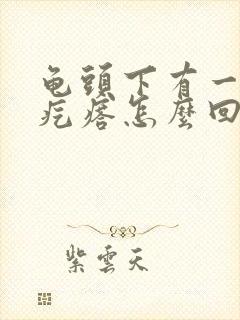 龟頭下有一
疙瘩怎麼回
紫雲天